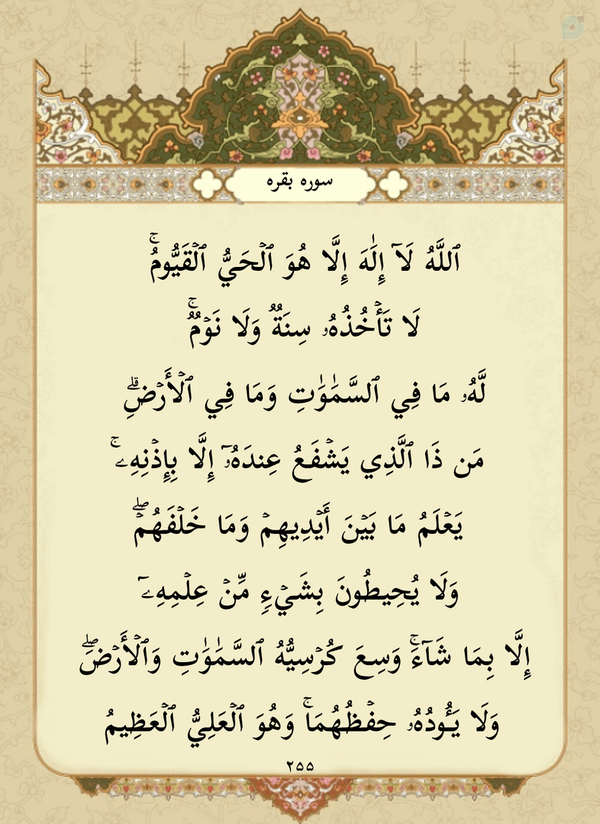 سوره بقره
ٱللَّهُ لَآ إِلَٰهَ إِلَّا هُوَ ٱلۡحَيُّ ٱلۡقَيُّومُۚ
لَا تَأۡخُذُهُۥ سِنَةٞ وَلَا نَوۡمٞۚ
لَّهُۥ مَا فِي ٱلسَّمَٰوَٰتِ وَمَا فِي ٱلۡأَرۡضِۗ
مَن ذَا ٱلَّذِي يَشۡفَعُ عِندَهُۥٓ إِلَّا بِإِذۡنِهِۦۚ
يَعۡلَمُ مَا بَيۡنَ أَيۡدِيهِمۡ وَمَا خَلۡفَهُمۡۖ
وَلَا يُحِيطُونَ بِشَيۡءٖ مِّنۡ عِلۡمِهِۦٓ
إِلَّا بِمَا شَآءَۚ وَسِعَ كُرۡسِيُّهُ ٱلسَّمَٰوَٰتِ وَٱلۡأَرۡضَۖ
وَلَا يَـُٔودُهُۥ حِفۡظُهُمَاۚ وَهُوَ ٱلۡعَلِيُّ ٱلۡعَظِيمُ
۲۵۵